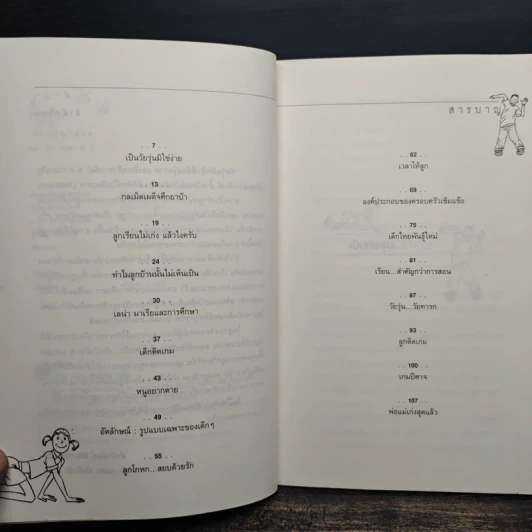 . . 7 . .
เป็นวัยรุ่นมิใช่ง่าย
. . 13 . .
กลเม็ดเผด็จศึกยาบ้า
. . 19 . .
ลูกเรียนไม่เก่ง แล้วไงครับ
. . 24 . .
ทำไมลูกบ้านนั้นไม่เห็นเป็น
. . 30 . .
เลน่า มาเรียและการศึกษา
. . 37 . .
เด็กติดเกม
. . 43 . .
หนูอยากตาย
. . 49 . .
อัตลักษณ์ : รูปแบบเฉพาะของเด็กๆ
. . 55 . .
ลูกโกหก...สยบด้วยรัก
สารบาญ
. . 62 . .
เวลาให้ลูก
. . 69 . .
องค์ประกอบของครอบครัวเข้มแข็ง
. . 75 . .
เด็กไทยพันธุ์ใหม่
. . 81 . .
เรียน...สำคัญกว่าการสอน
. . 87 . .
วัยรุ่น...วัยทารก
. . 93 . .
ลูกติดเกม
. . 100 . .
เกมปีศาจ
. . 107 . .
พ่อแม่เก่งสุดแล้ว